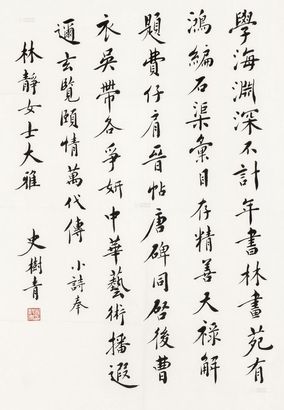 學海淵深不計年書林畫苑有
鴻編石渠彙目存精善天祿解
題費仔肩晉帖唐碑同啓後曹
衣吳帶各爭妍中華藝術播遐
邇玄覽頤情萬代傳 小詩奉
林靜女士大雅
史樹青